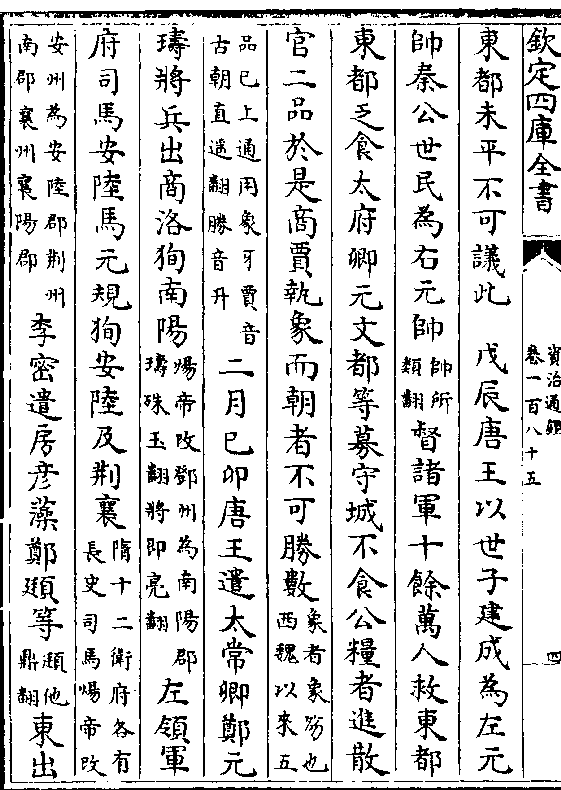 欽定四庫全書
資治通鑑
卷一百八十五
四
東都未平不可議此　戊辰唐王以世子建成為左元
帥秦公世民為右元帥帥所類翻督諸軍十餘萬人救東都
東都乏食太府卿元文都等募守城不食公糧者進散
官二品於是商賈執象而朝者不可勝數象者象笏也西魏以來五
品已上通用象牙賈音古朝直遥翻勝音升二月己卯唐王遣太常卿鄭元
璹將兵出商洛狥南陽煬帝改鄧州為南陽郡璹殊玉翻將即亮翻左領軍
府司馬安陸馬元規狥安陸及荆襄隋十二衛府各有長史司馬煬帝改
安州為安陸郡荆州南郡襄州襄陽郡李密遣房彦藻鄭頲等頲他鼎翻東出